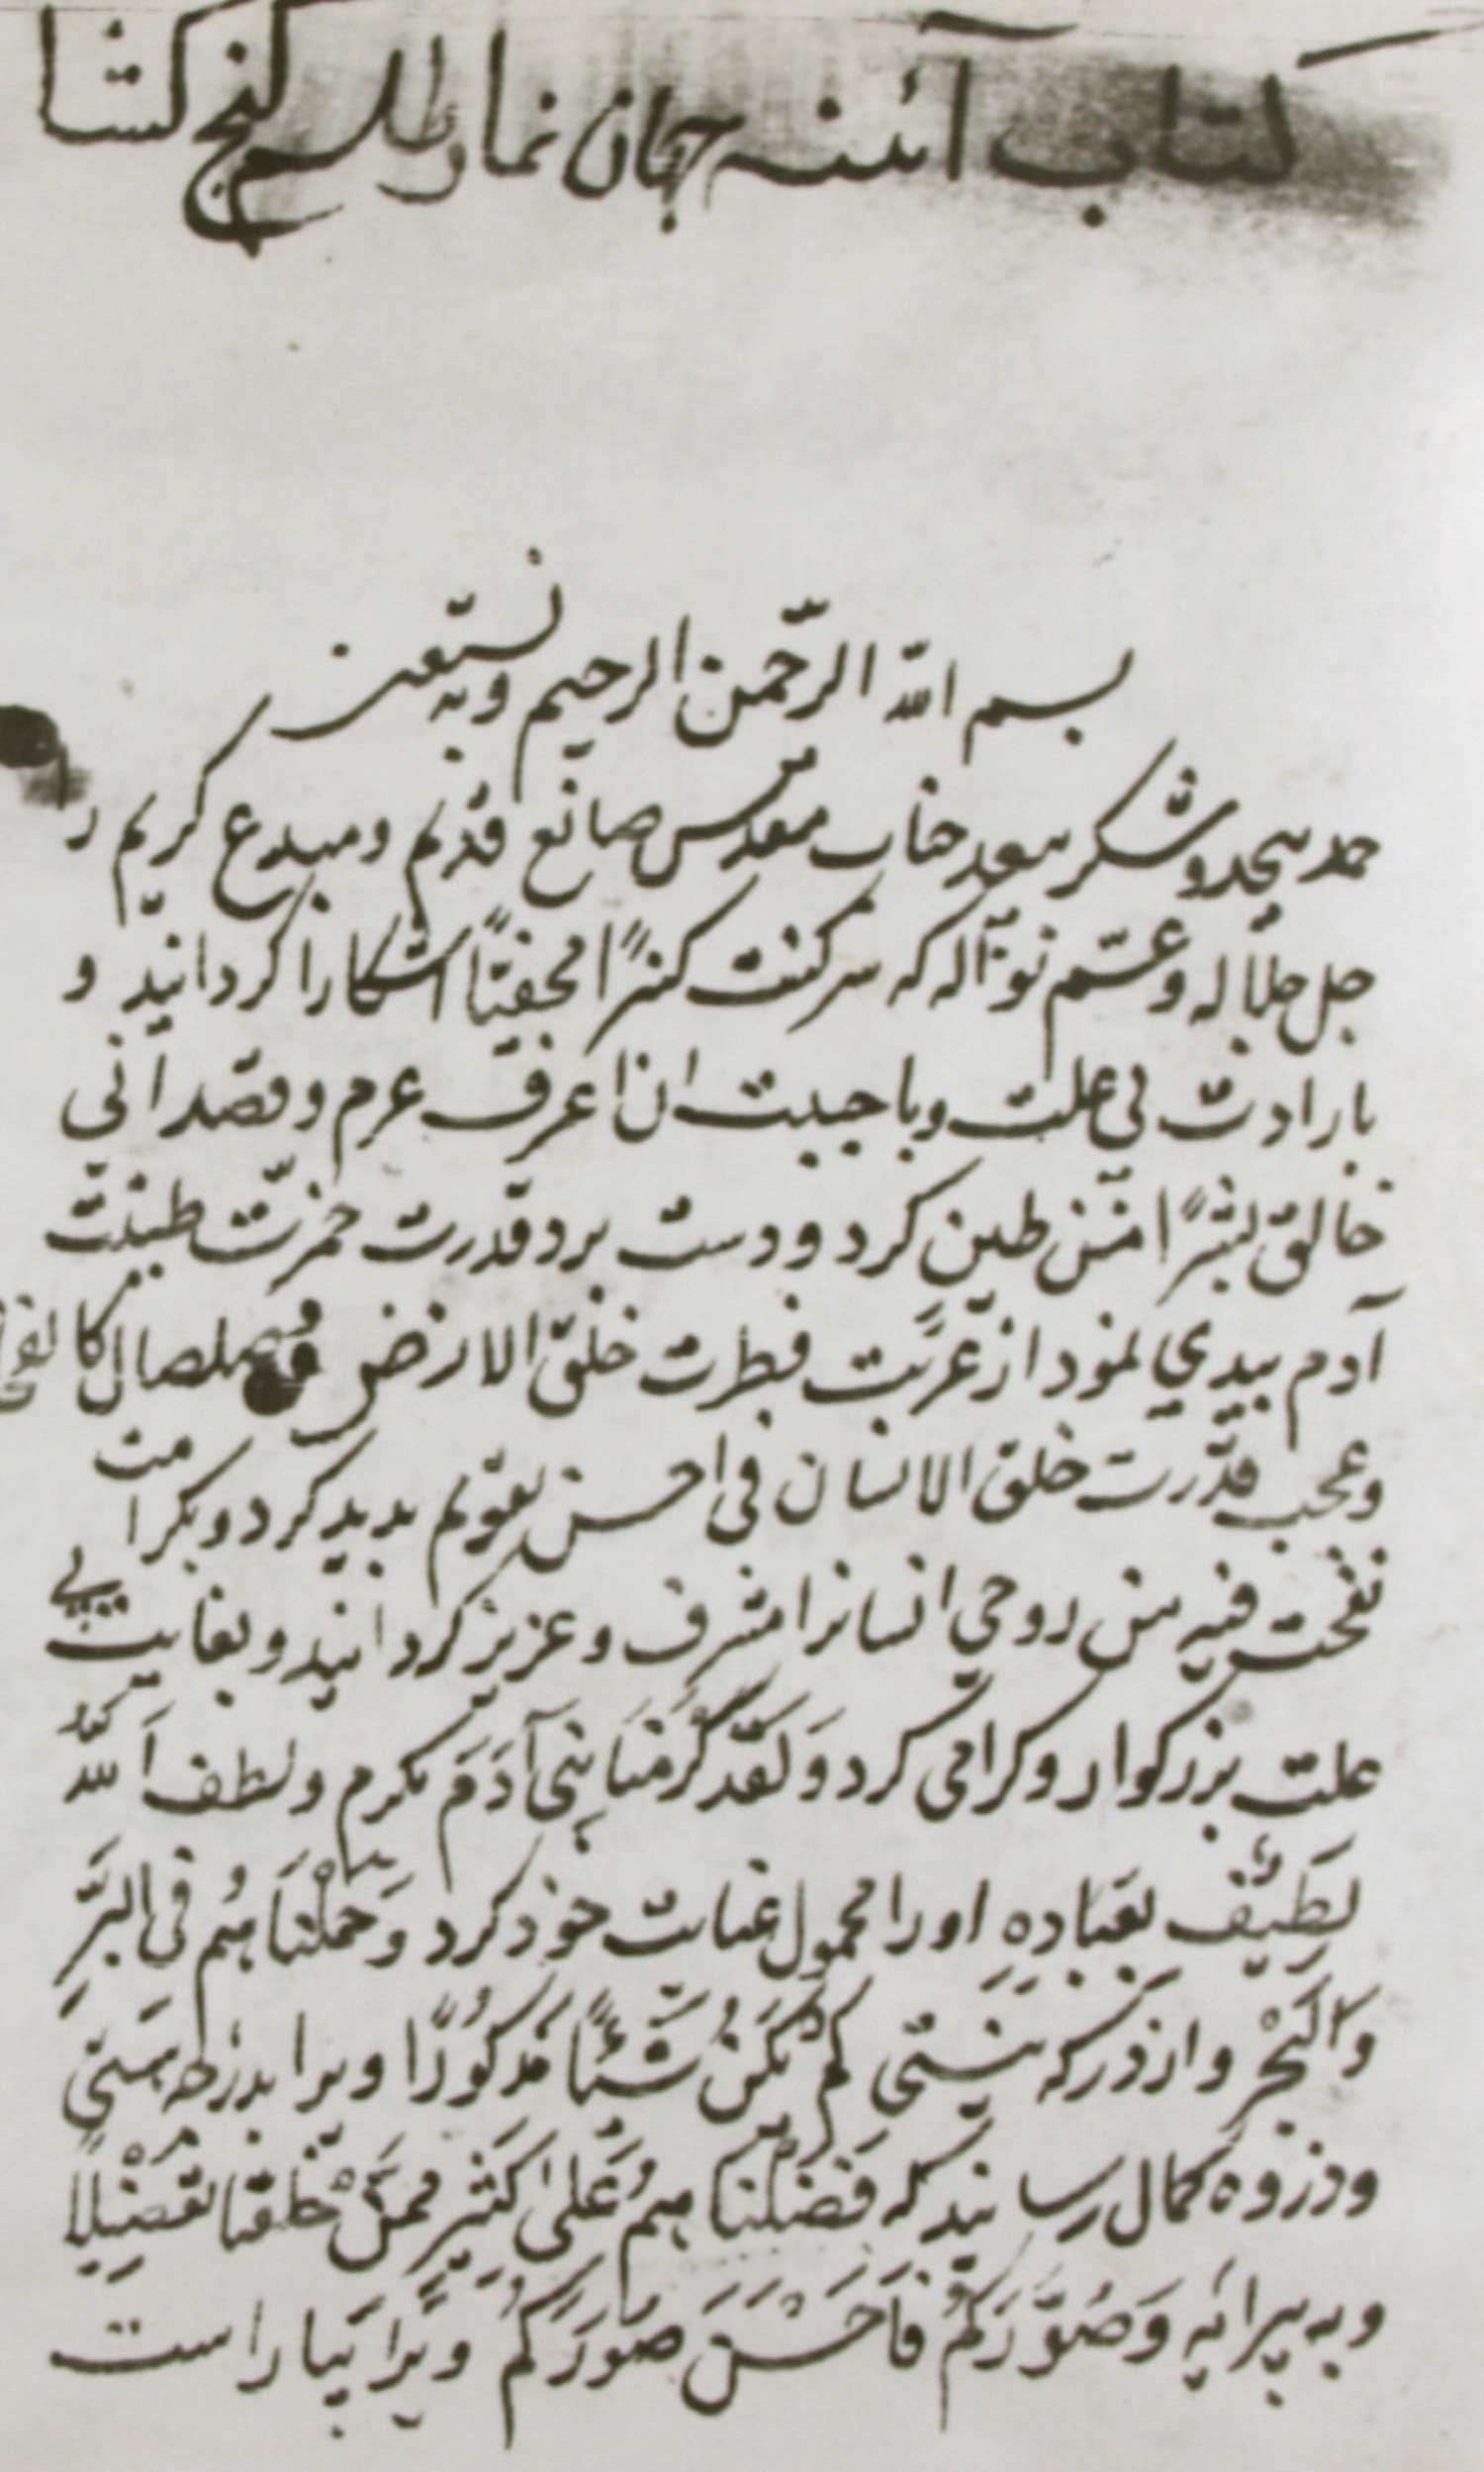 کتاب آئنه جهان نما و طلسم گنج کشا
بسم الله الرّحمن الرحیم وبه نستعین
حمد بیحد و شکر بیعد جناب مقدس صانع قدیم و مبدع کریم را
جل جلاله و عّم نواله که سر کنت کنزًا مخفیًا اشکارا کردانید و
بارادت بی علت و با حببت ان اعرف عرم و قصد انی
خالق بشرًا من طین کرد و دست برد قدرت خمرت طینت
آدم بیدي نمود از غربت فطرت خلق الارض صلصال کالفخار
و عجب قدرت خلق الانسان فی احسن تقویم بدید کرد و بکرامت
نفخت فیه من روحي انسانرا مشرف و عزیز کردانید و بغایت بی
علت بزرکوار و کرامی کرد وَ لَقَد کَرَّمنَا بَنِی آدَمَ مکرم و لطف اَللّهُ
لَطِیفٌ بِعِبَادِهِ اورا محمول عنایت خود کرد وَ حَمَلْنَا هُم فِی البَرِّ
وَ الْبَحْرِ و از درکه نیستی لَم یَکُنْ شَیْئًا مَذکُورًا ویرا بدرجه هستی
و ذروه کمال رسانید که فَضَّلْنَا هُم عَلیٰ کَثِیرٍ مِمَّنْ خلقنا تَفْضِیلًا
و به پیرایه وَ صَوَّرَکُمْ فَاَحْسَنَ صُوَرَکُم ویرا بیاراست